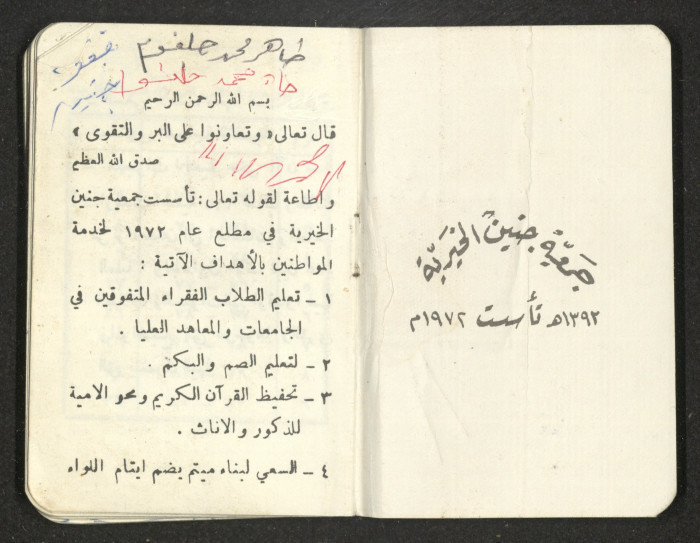 جمعيّة جنين الخيريّة
١٣٩٢هـ تأسست ١٩٧٢م
طاهر محمد
محمد
بسم الله الرحمن الرحيم
قال تعالى « وتعاونوا على البر والتقوى »
صدق الله العظيم
واطاعة لقوله تعالى : تأسست جمعية جنين
الخيرية في مطلع عام ١٩٧٢ لخدمة
المواطنين بالأهداف الآتية :
١ ـ تعليم الطلاب الفقراء المتفوقين في
الجامعات والمعاهد العليا .
٢ ـ لتعليم الصم والبكم .
٣ ـ تحفيظ القرآن الكريم ومحو الامية
للذكور والاناث .
٤ ـ السعي لبناء ميتم يضم ايتام اللواء